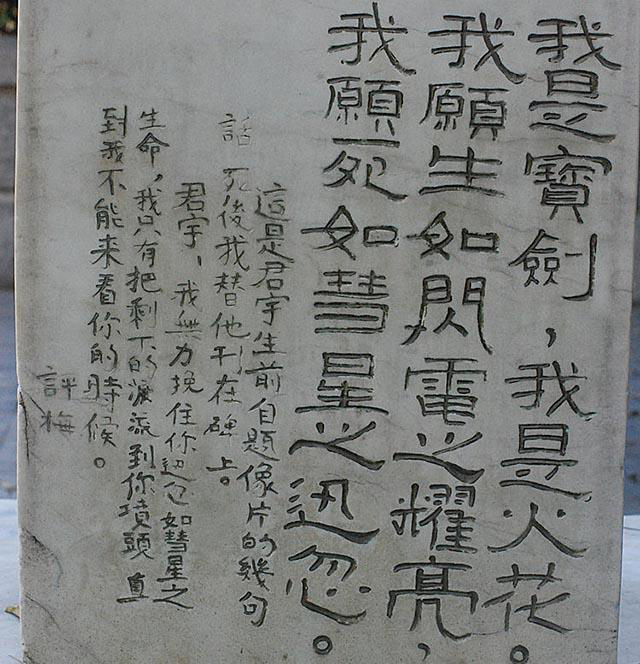 我是寶劍，我是火花。
我願生如閃電之耀亮，
我願死如彗星之迅忽。
這是君宇生前自題像片的幾句
話死後我替他刊在碑上。
君宇，我無力挽住你迅忽如彗星之
生命，我只有把剩下的淚流到你墳頭直
到我不能来看你的時候。
評梅